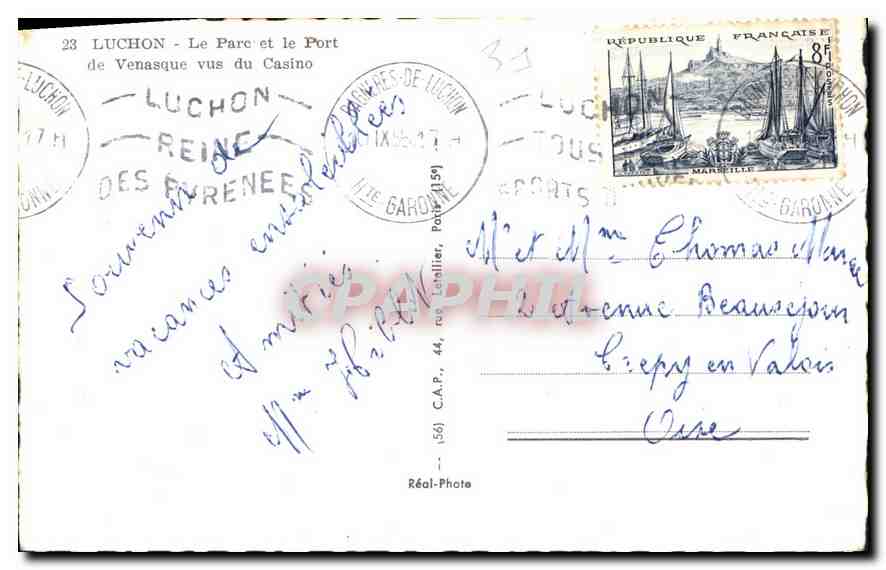 23 LUCHON - Le Parc et le Port
de Venasque vus du Casino
31
RÉPUBLIQUE FRANÇAISE
8F
POSTES
MARSEILLE
LUCHON
REINE
DES PYRENEES
BAGNERES-DE-LUCHON
IX
HTE GARONNE
LUCHON
TOUS
SPORTS D'HIVER
LUCHON
17 H
GARONNE
HTE GARONNE
Souvenir de
vacances ensoleillées
Amitiés
Mme
Mr et Mme Thomas
2 Avenue Beauséjour
Crepy en Valois
Oise
(56) C.A.P., 44, rue Letellier, Paris (15e)
Réal-Photo
CPAPHIL